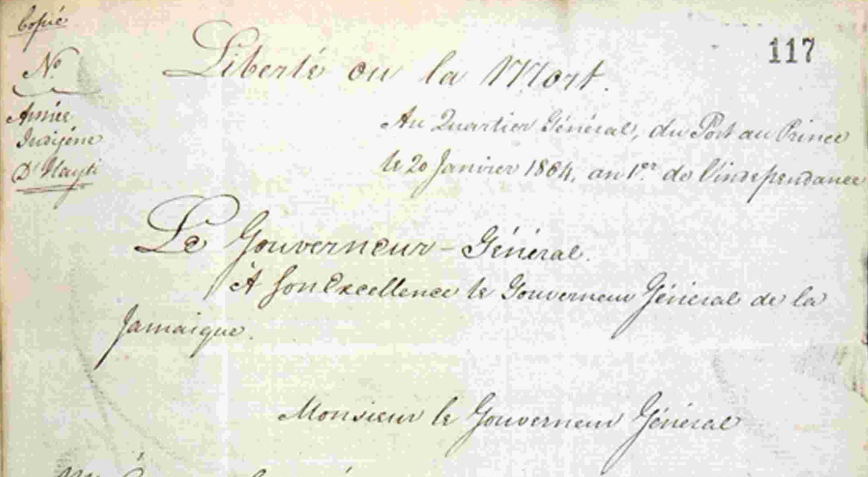 Copié
117
No
Liberté ou la Mort.
Armée
Indigène
D'Hayti
Au Quartier Général, du Port au Prince
le 20 Janvier 1804, an 1er de l'independance
Le Gouverneur-Général.
A Son Excellence le Gouverneur Général de la
Jamaique.
Monsieur le Gouverneur Général